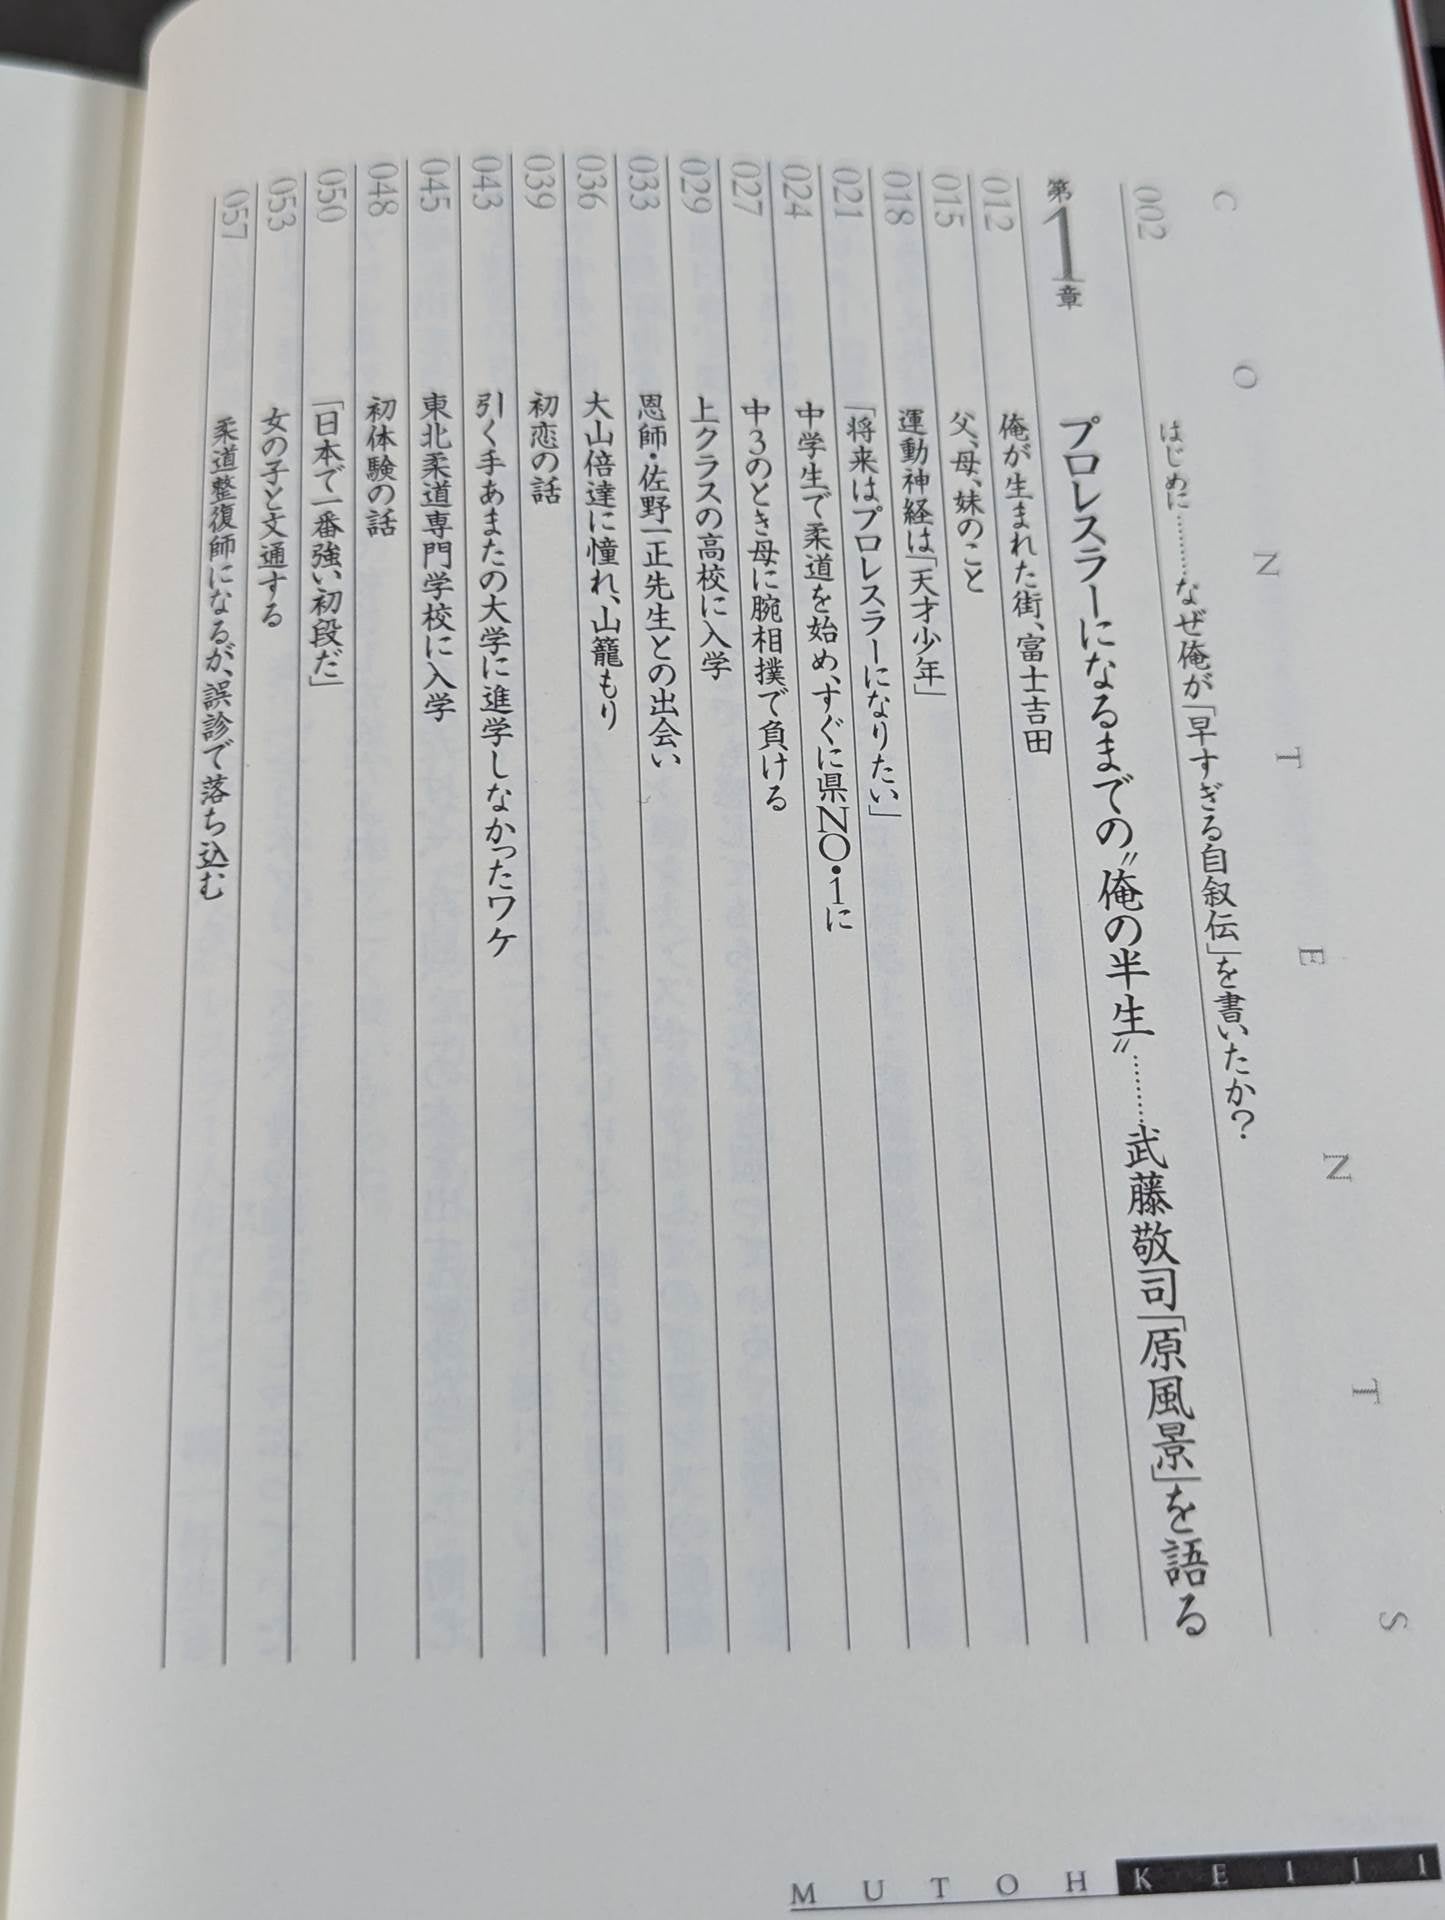 CONTENTS
002 はじめに………なぜ俺が「早すぎる自叙伝」を書いたか？
第1章 プロレスラーになるまでの〝俺の半生〟………武藤敬司「原風景」を語る
012 俺が生まれた街、富士吉田
015 父、母、妹のこと
018 運動神経は「天才少年」
021 「将来はプロレスラーになりたい」
024 中学生で柔道を始め、すぐに県NO・1に
027 中3のとき母に腕相撲で負ける
029 上クラスの高校に入学
033 恩師・佐野一正先生との出会い
036 大山倍達に憧れ、山籠もり
039 初恋の話
043 引く手あまたの大学に進学しなかったワケ
045 東北柔道専門学校に入学
048 初体験の話
050 「日本で一番強い初段だ」
053 女の子と文通する
057 柔道整復師になるが、誤診で落ち込む
MUTOH KEIJI